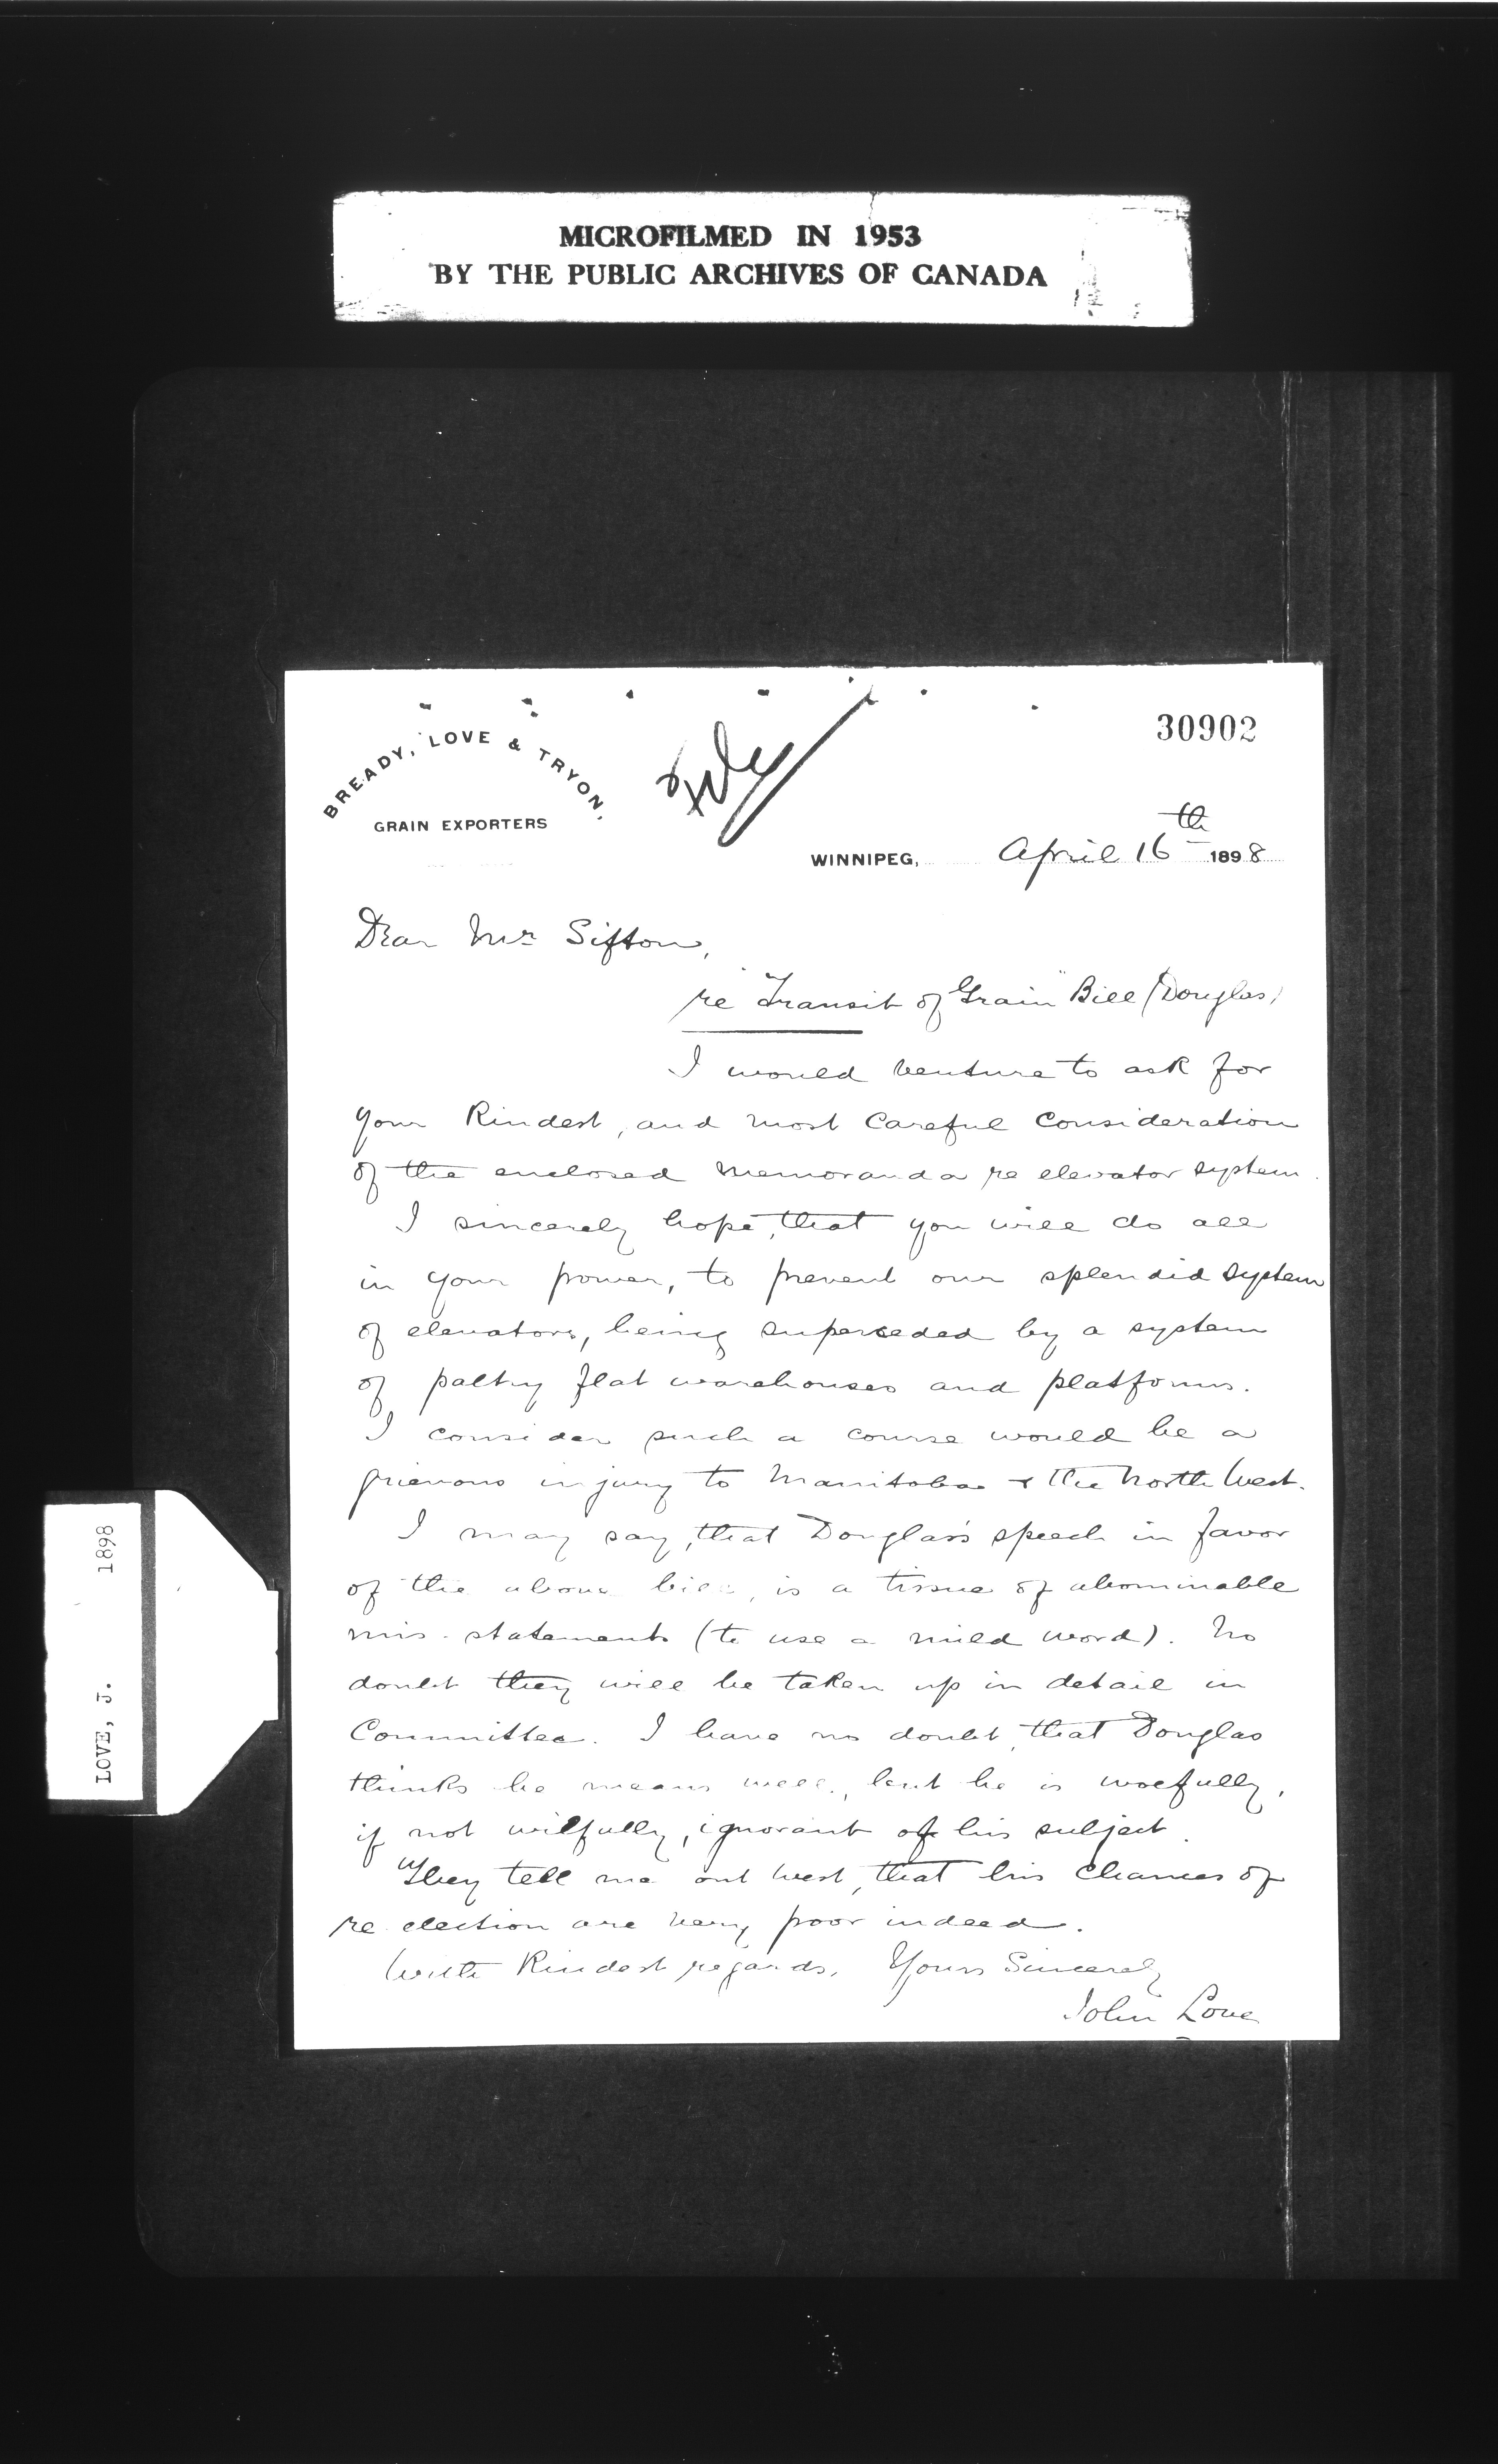 MICROFILMED IN 1953
BY THE PUBLIC ARCHIVES OF CANADA
30902
BREADY, LOVE & TRYON,
GRAIN EXPORTERS
File
WINNIPEG, April 16th 1898
Dear Mr Sifton,
re "Transit of Grain" Bill (Douglas)
I would venture to ask for
your kindest, and most careful consideration
of the enclosed memoranda re elevator system.
I sincerely hope, that you will do all
in your power, to prevent our splendid system
of elevators, being superseded by a system
of paltry flat warehouses and platforms.
I consider such a course would be a
grievous injury to Manitoba & the North West.
I may say, that Douglas's speech in favor
of the above bill, is a tissue of abominable
mis-statements (to use a mild word). No
doubt they will be taken up in detail in
Committee. I have no doubt, that Douglas
thinks he means well, but he is woefully,
if not wilfully, ignorant of his subject.
They tell me out West, that his chances of
re election are very poor indeed.
With kindest regards, Yours Sincerely
John Love
LOVE, J. 1898